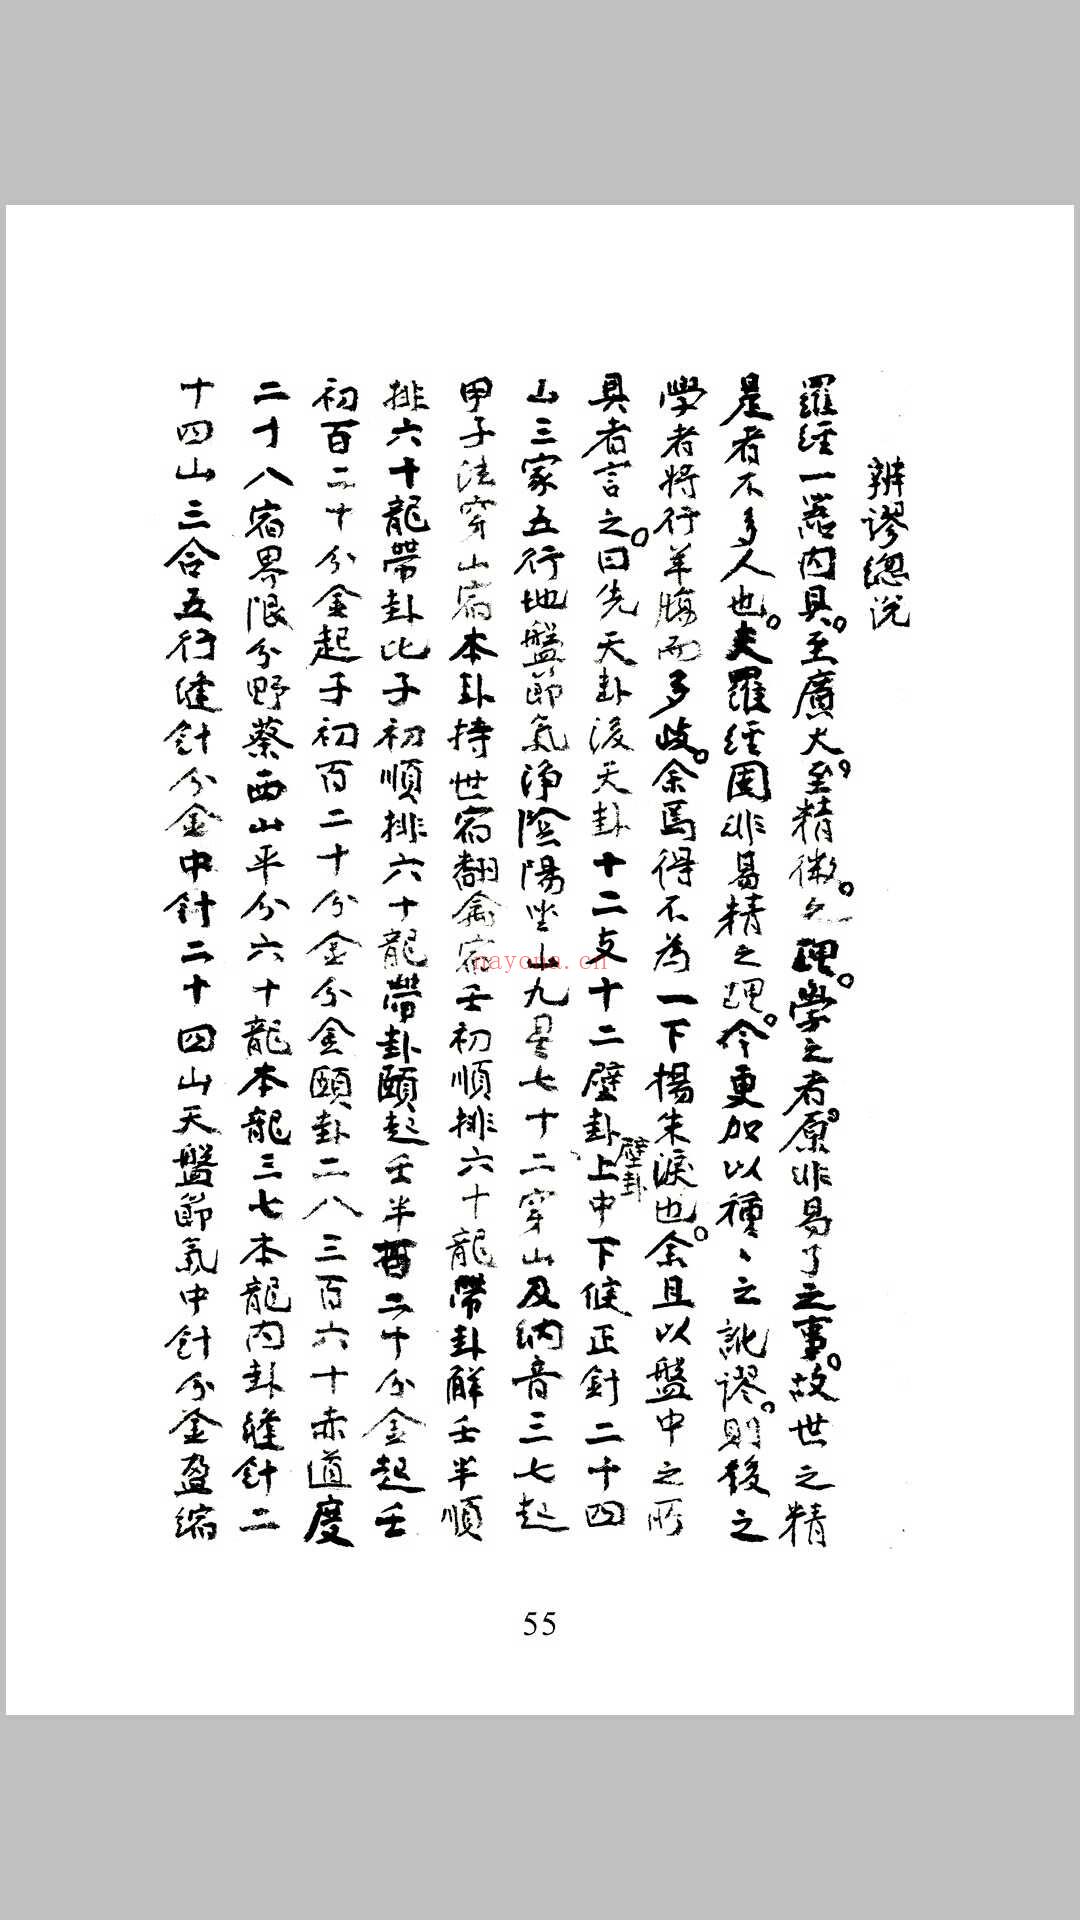 辨謬總說
羅經一器內具。至廣大。至精微。之理。學之者。原非易了之事。故世之精
是者不多人也。夫羅經固非易精之理。今更加以種々之訛謬。則後之
學者將行羊腸而多歧。余焉得不為一下楊朱淚也。余且以盤中之所
具者言之。曰先天卦後天卦十二支十二壁卦上中下候正針二十四
壁卦
山三家五行地盤節氣淨陰陽坐山九星七十二穿山及納音三七起
甲子法穿山宿本卦持世宿翻禽宿壬初順排六十龍帶卦解壬半順
排六十龍帶卦比子初順排六十龍帶卦頤起壬半百二十分金起壬
初百二十分金起子初百二十分金分金頤卦二八三百六十赤道度
二十八宿界限分野蔡西山平分六十龍本龍三七本龍內卦縫針二
十四山三合五行縫針分金中針二十四山天盤節氣中針分金盈縮
nayona.cn
55